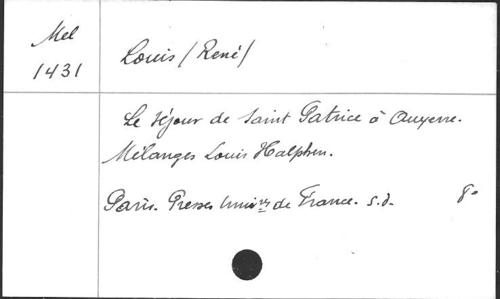 Mel
1431
Louis (René)
Le séjour de Saint Patrice à Auxerre.
Mélanges Louis Halphen.
Paris. Presses Univ^res de France. s.d. 8°